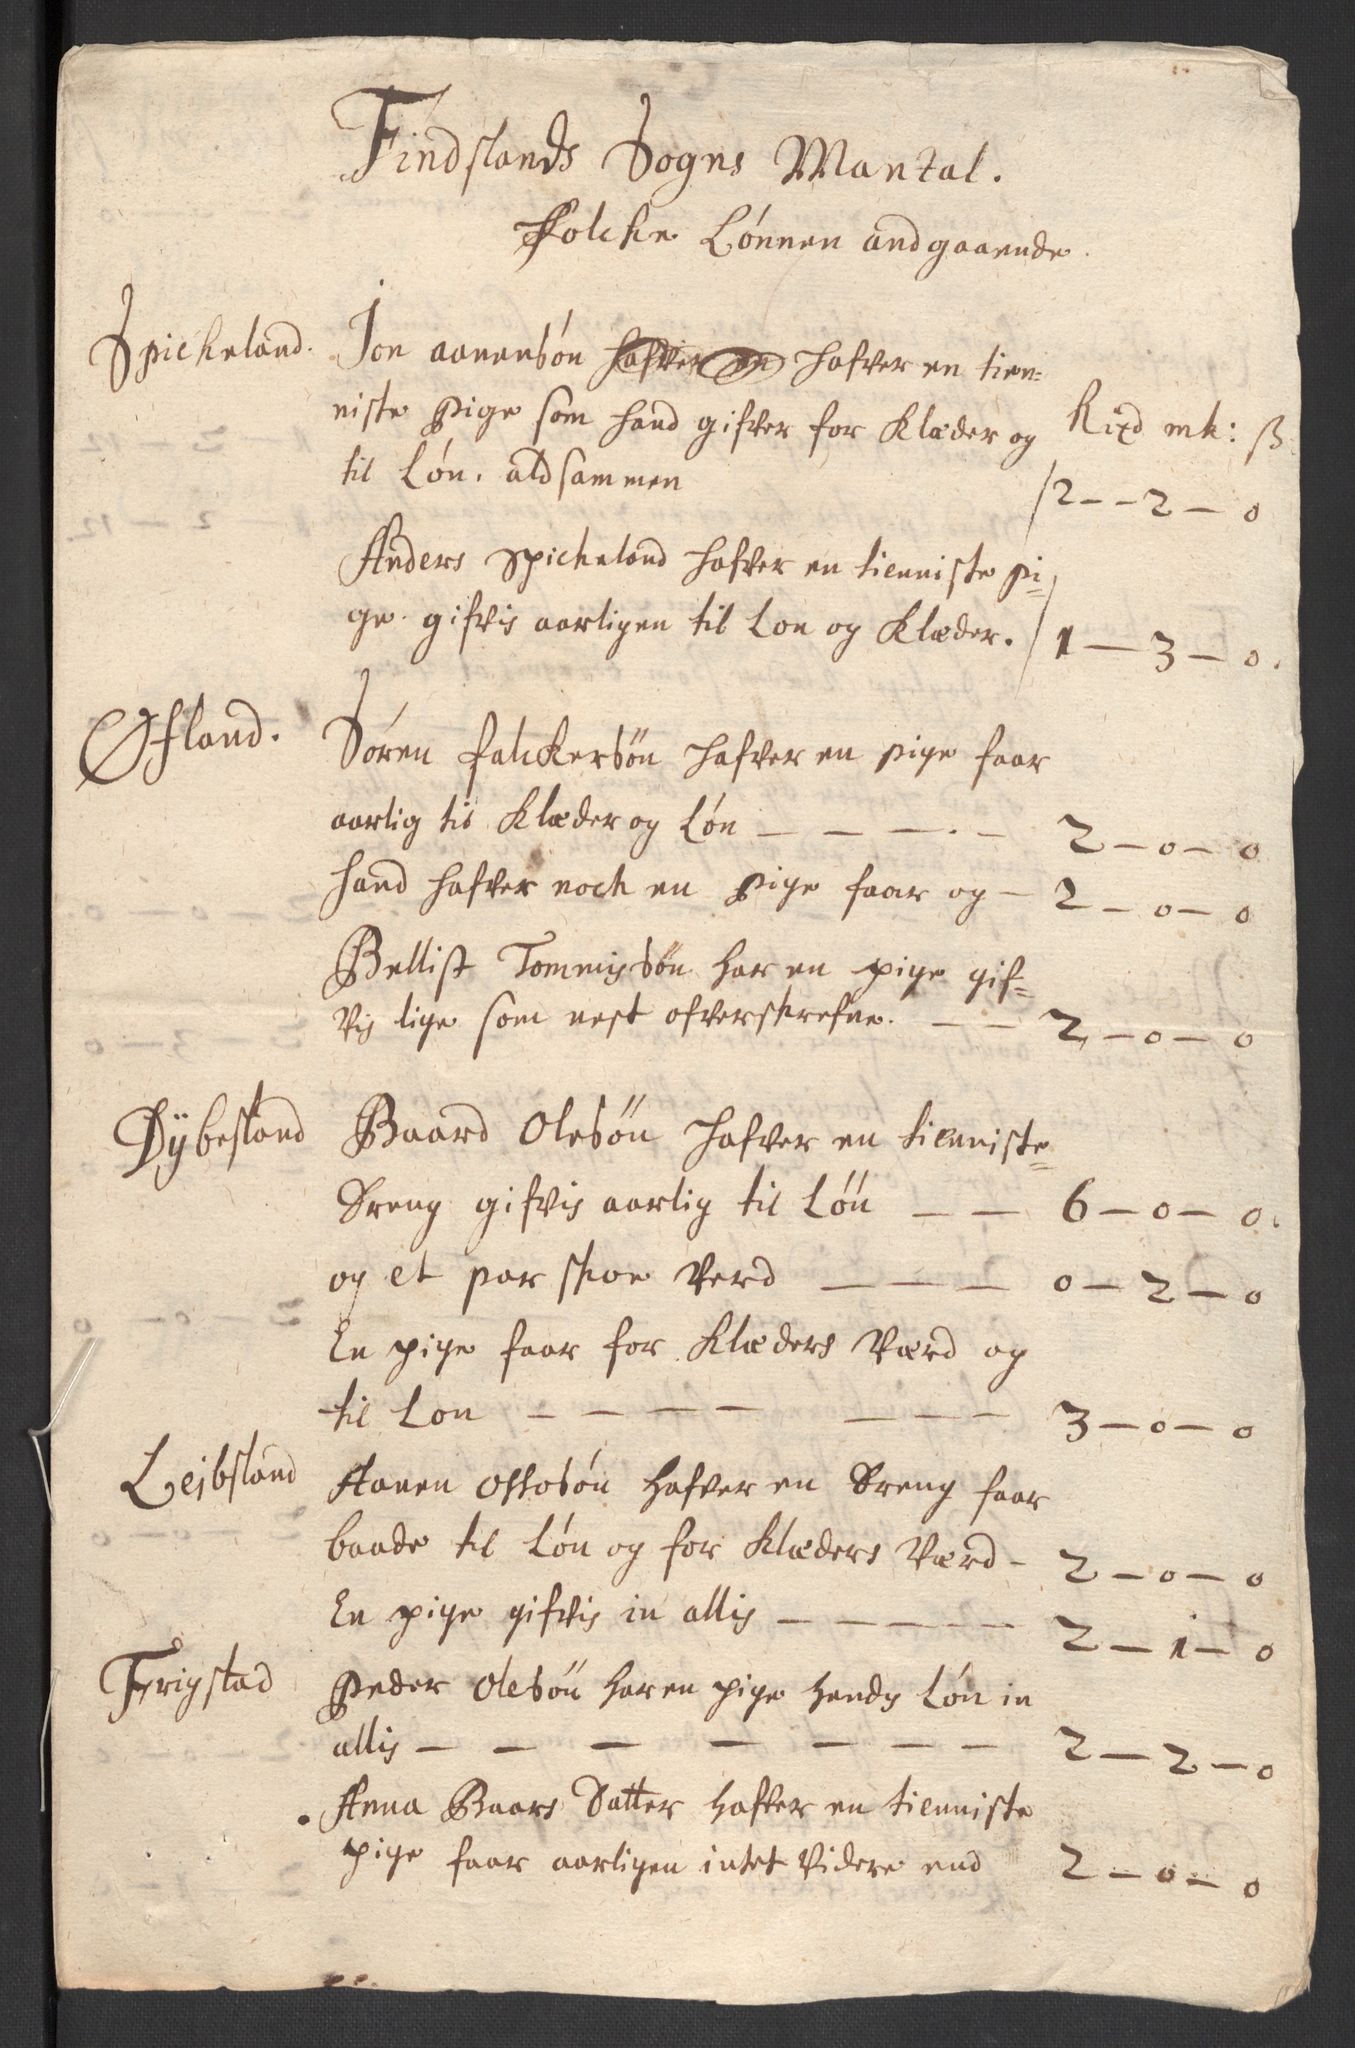 Findslands Sogns Mantal.
Folche Lónnen andgaaende.
Spicheland. Jon aanensón hafver en tien=
niste Pige som hand gifver for Klæder og Rixd mk: ß
til Lón. aldsammen 2 – – 2 – 0
Anders Spicheland hafver en tienniste Pi=
ge. gifvis aarligen til Lon og Klæder. 1 – 3 – 0.
Øfland. Sóren falckersön hafver en pige faar
aarlig til Klæder og Lón – – – – 2 – 0 – 0
hand hafver noch en Pige faar og – 2 – 0 – 0
Bellist Tommissön har en pige gif=
vis lige som nest ofverskrefne. – – 2 – 0 – 0
Dÿbesland Baard Olesön hafver en tienniste=
Dreng gifvis aarlig til Löń – – 6 – 0 – 0.
og et par skoe Verd – – – 0 – 2 – 0
En pige faar for Klæders Værd og
til Lon – – – – – – – 3 – 0 – 0
Leibsland Aanen Ottosón hafver en Dreng faar
baade til Lón og for Klæders Værd – 2 – 0 – 0
En pige gifvis in allis – – – – – 2 – 1 – 0
Fyrigstad Peder Olesön har en pige hendis Lón in
allis – – – – – – – 2 – 2 – 0
Anna Baars Datter hafver en tienniste
pige faar aarligen intet Videre end 2 – 0 – 0